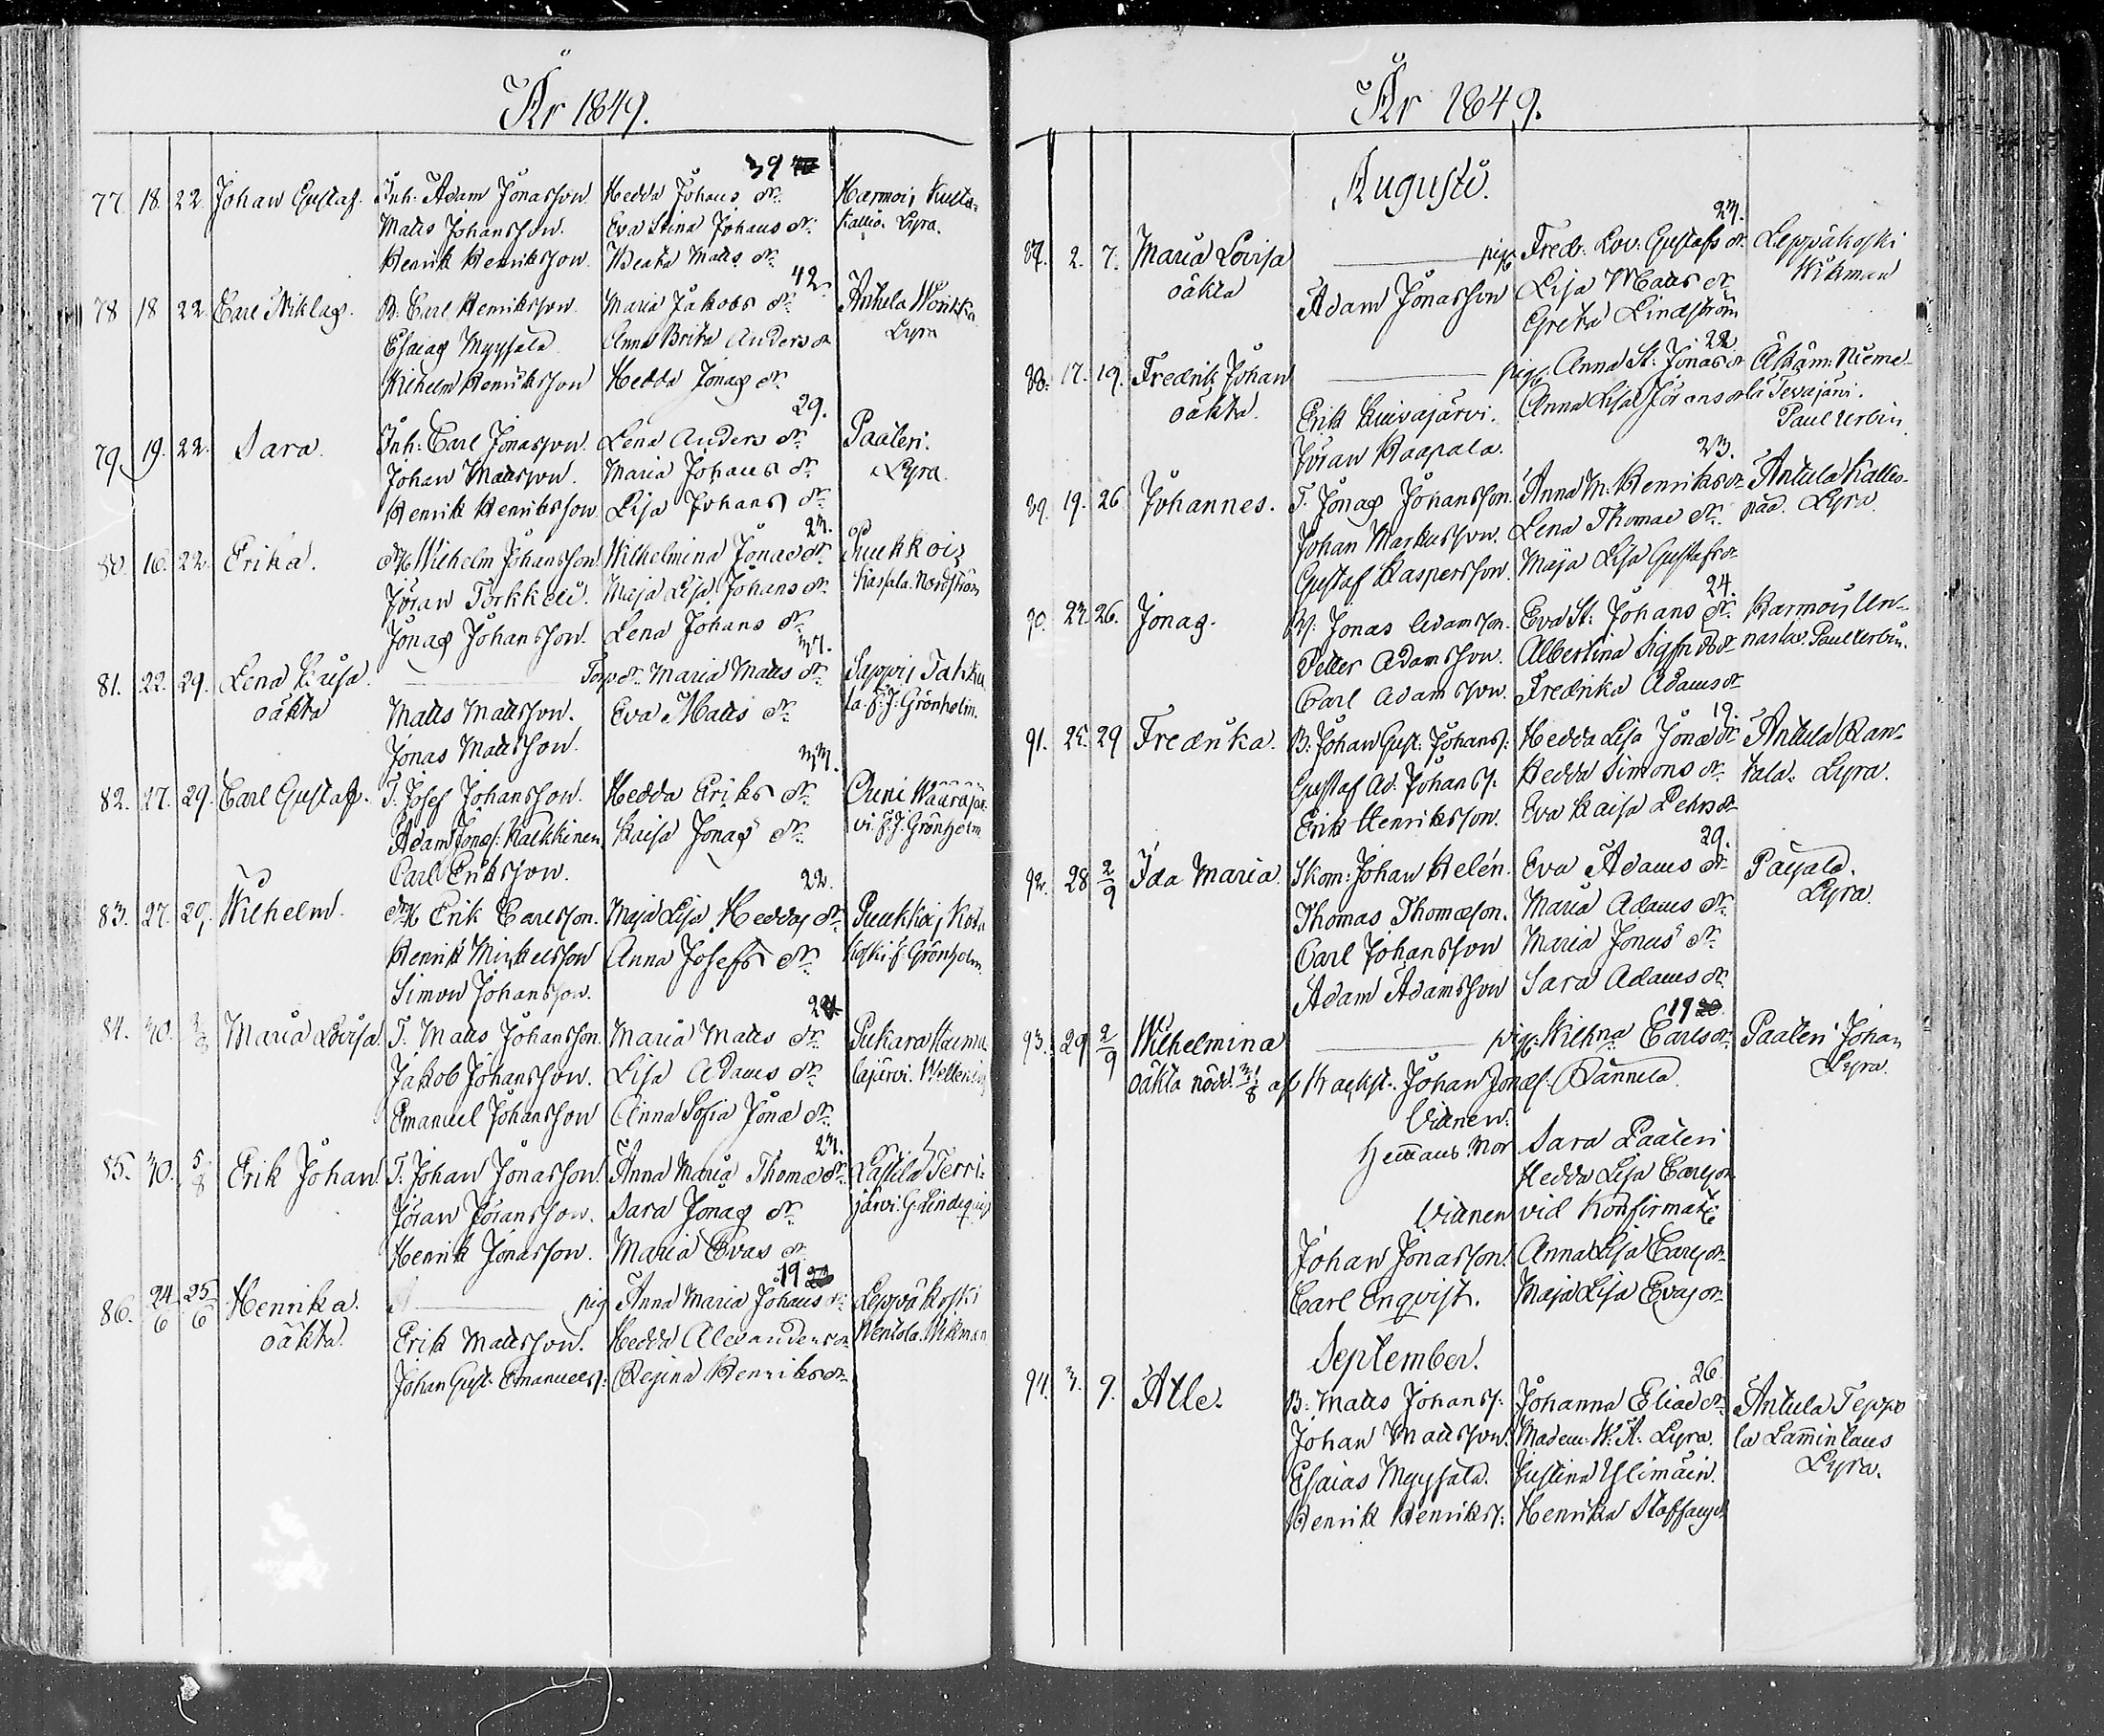 År 1849.
39
77. 18. 22. Johan Gustaf. Inh: Adam Jonasson. Hedda Johans dr. Karmois Kulta-
Matts Johansson. Eva Stina Johans dr. kallio. Lyra.
Henrik Henriksson. Beata Matts dr.
42.
78 18 22 Carl Niklas. B. Carl Henriksson. Maria Jakobs dr. Antula Wonkka
Esaias Myysala Anna Brita Anders dr Lyra
Wilhelm Henriksson Hedda Jonas dr.
29.
79. 19. 22. Sara. Inh: Carl Jonasson. Lena Anders dr. Paateri.
Johan Mattsson. Maria Johans dr. Lyra.
Henrik Henriksson Lisa Johans dr.
23.
80. 16. 22. Erika. Wilhelm Johansson. Wilhelmina Jonae dr. Ruukkois
Jöran Torkkeli. Maja Lisa Johans dr. Kassala. Nordström
Jonas Johansson. Lena Johans dr.
37.
81. 22. 29. Lena Kaisa. Torp dr. Maria Matts dr. Seppis Tahku
oäkta Matts Mattsson. Eva Matts dr. la. F. J. Grönholm.
Jonas Mattsson.
33.
82. 27. 29. Carl Gustaf. T. Josef Johansson. Hedda Eriks dr. Ouni Wäärajär-
Adam Jonas: Kalkkinen. Kaisa Jonas dr. vi. F. J. Grönholm
Carl Eriksson.
22.
83. 27. 29. Wilhelm. Erik Carlsson. Maja Lisa Heddas dr. Ruukkois Kos-
Henrik Mickelsson Anna Josefs dr. koski F. Grönholm.
Simon Johansson.
84. 30. Maria Lovisa T. Matts Johansson. Maria Matts dr. Pukara
Jakob Johansson. Lisa Adams dr. lajärvi.
Emanuel Johansson Anna Sofia Jonae dr.
23.
85. 30. 5/8 Erik Johan. T. Johan Jonasson. Anna Maria Thomae dr. Lassila Terri-
Jöran Jöransson. Sara Jonas dr. järvi. G. Lindeqvist
Henrik Jonasson. Maria Evas dr.
19
86. 24/6 25/6 Henrika. pig Anna Maria Johans dr. Leppäkoski
oäkta. Erik Mattsson. Hedda Alexanders dr Hentola. Wikman
Johan Gust. Emanuels: Regina Henriks dr
År 1849.
Augusti.
23.
87. 2. 7. Maria Lovisa pig. Fredr: Lov: Gustafs dr. Leppäkoski
oäkta Adam Jonasson Lisa Matts dr Wikman
Greta Lindström
22
88. 17. 19. Fredrik Johan pig. Anna St: Jonas dr Nieme-
oäkta. Erik Kuivajärvi. Anna Lisa Jörans dr lä Tevajärvi.
Jöran Kaapala. Paul Uerbin
23.
89. 19. 26 Johannes. T. Jonas Johansson. Anna M. Henriks dr Antula Kallio-
Johan Markusson. Lena Thomae dr. pää. Lyra.
Gustaf Kaspersson. Maja Lisa Gustafs dr
24.
90. 23. 26. Jonas. B. Jonas Adamsson. Eva St: Johans dr. Karmois Un-
Petter Adamsson. Albertina Sigfrids dr naslax. Paul Uerbin.
Carl Adamsson. Fredrika Adams dr
19.
91. 25. 29 Fredrika. B: Johan Gust: Johans: Hedda Lisa Jonae dr Antula Ran-
Gustaf Ad. Johans: Hedda Simons dr. tala. Lyra.
Erik Henriksson. Eva Kaisa Pehrs dr
29.
92. 28 2/9 Ida Maria. Skom: Johan Helén. Eva Adams dr Pajala.
Thomas Thomasson. Maria Adams dr. Lyra.
Carl Johansson Maria Jonas dr.
Adam Adamsson Sara Adams dr
19
93. 29 2/9 Wilhelmina pig. Wilhna Carls dr Paateri Johan
oäkta född 3/8 af Johan Jonas: Dannela. Lyra.
Vittnen.
Sara Paateri
Hedda Lisa Carls dr
Vittnen vid Konfirmat:
Johan Jonasson. Anna Lisa Carls dr
Carl Enqvist. Maja Lisa Evas dr
September.
26.
94. 3. 9. Atle. B: Matts Johans: Johanna Eliae dr. Antula Teppo
Johan Mattsson. Madem: W. A. Lyra. la Lammintaus
Esaias Myysala. Justina Ylimäin. Lyra.
Henrik Henriks: Henrika Staffans dr